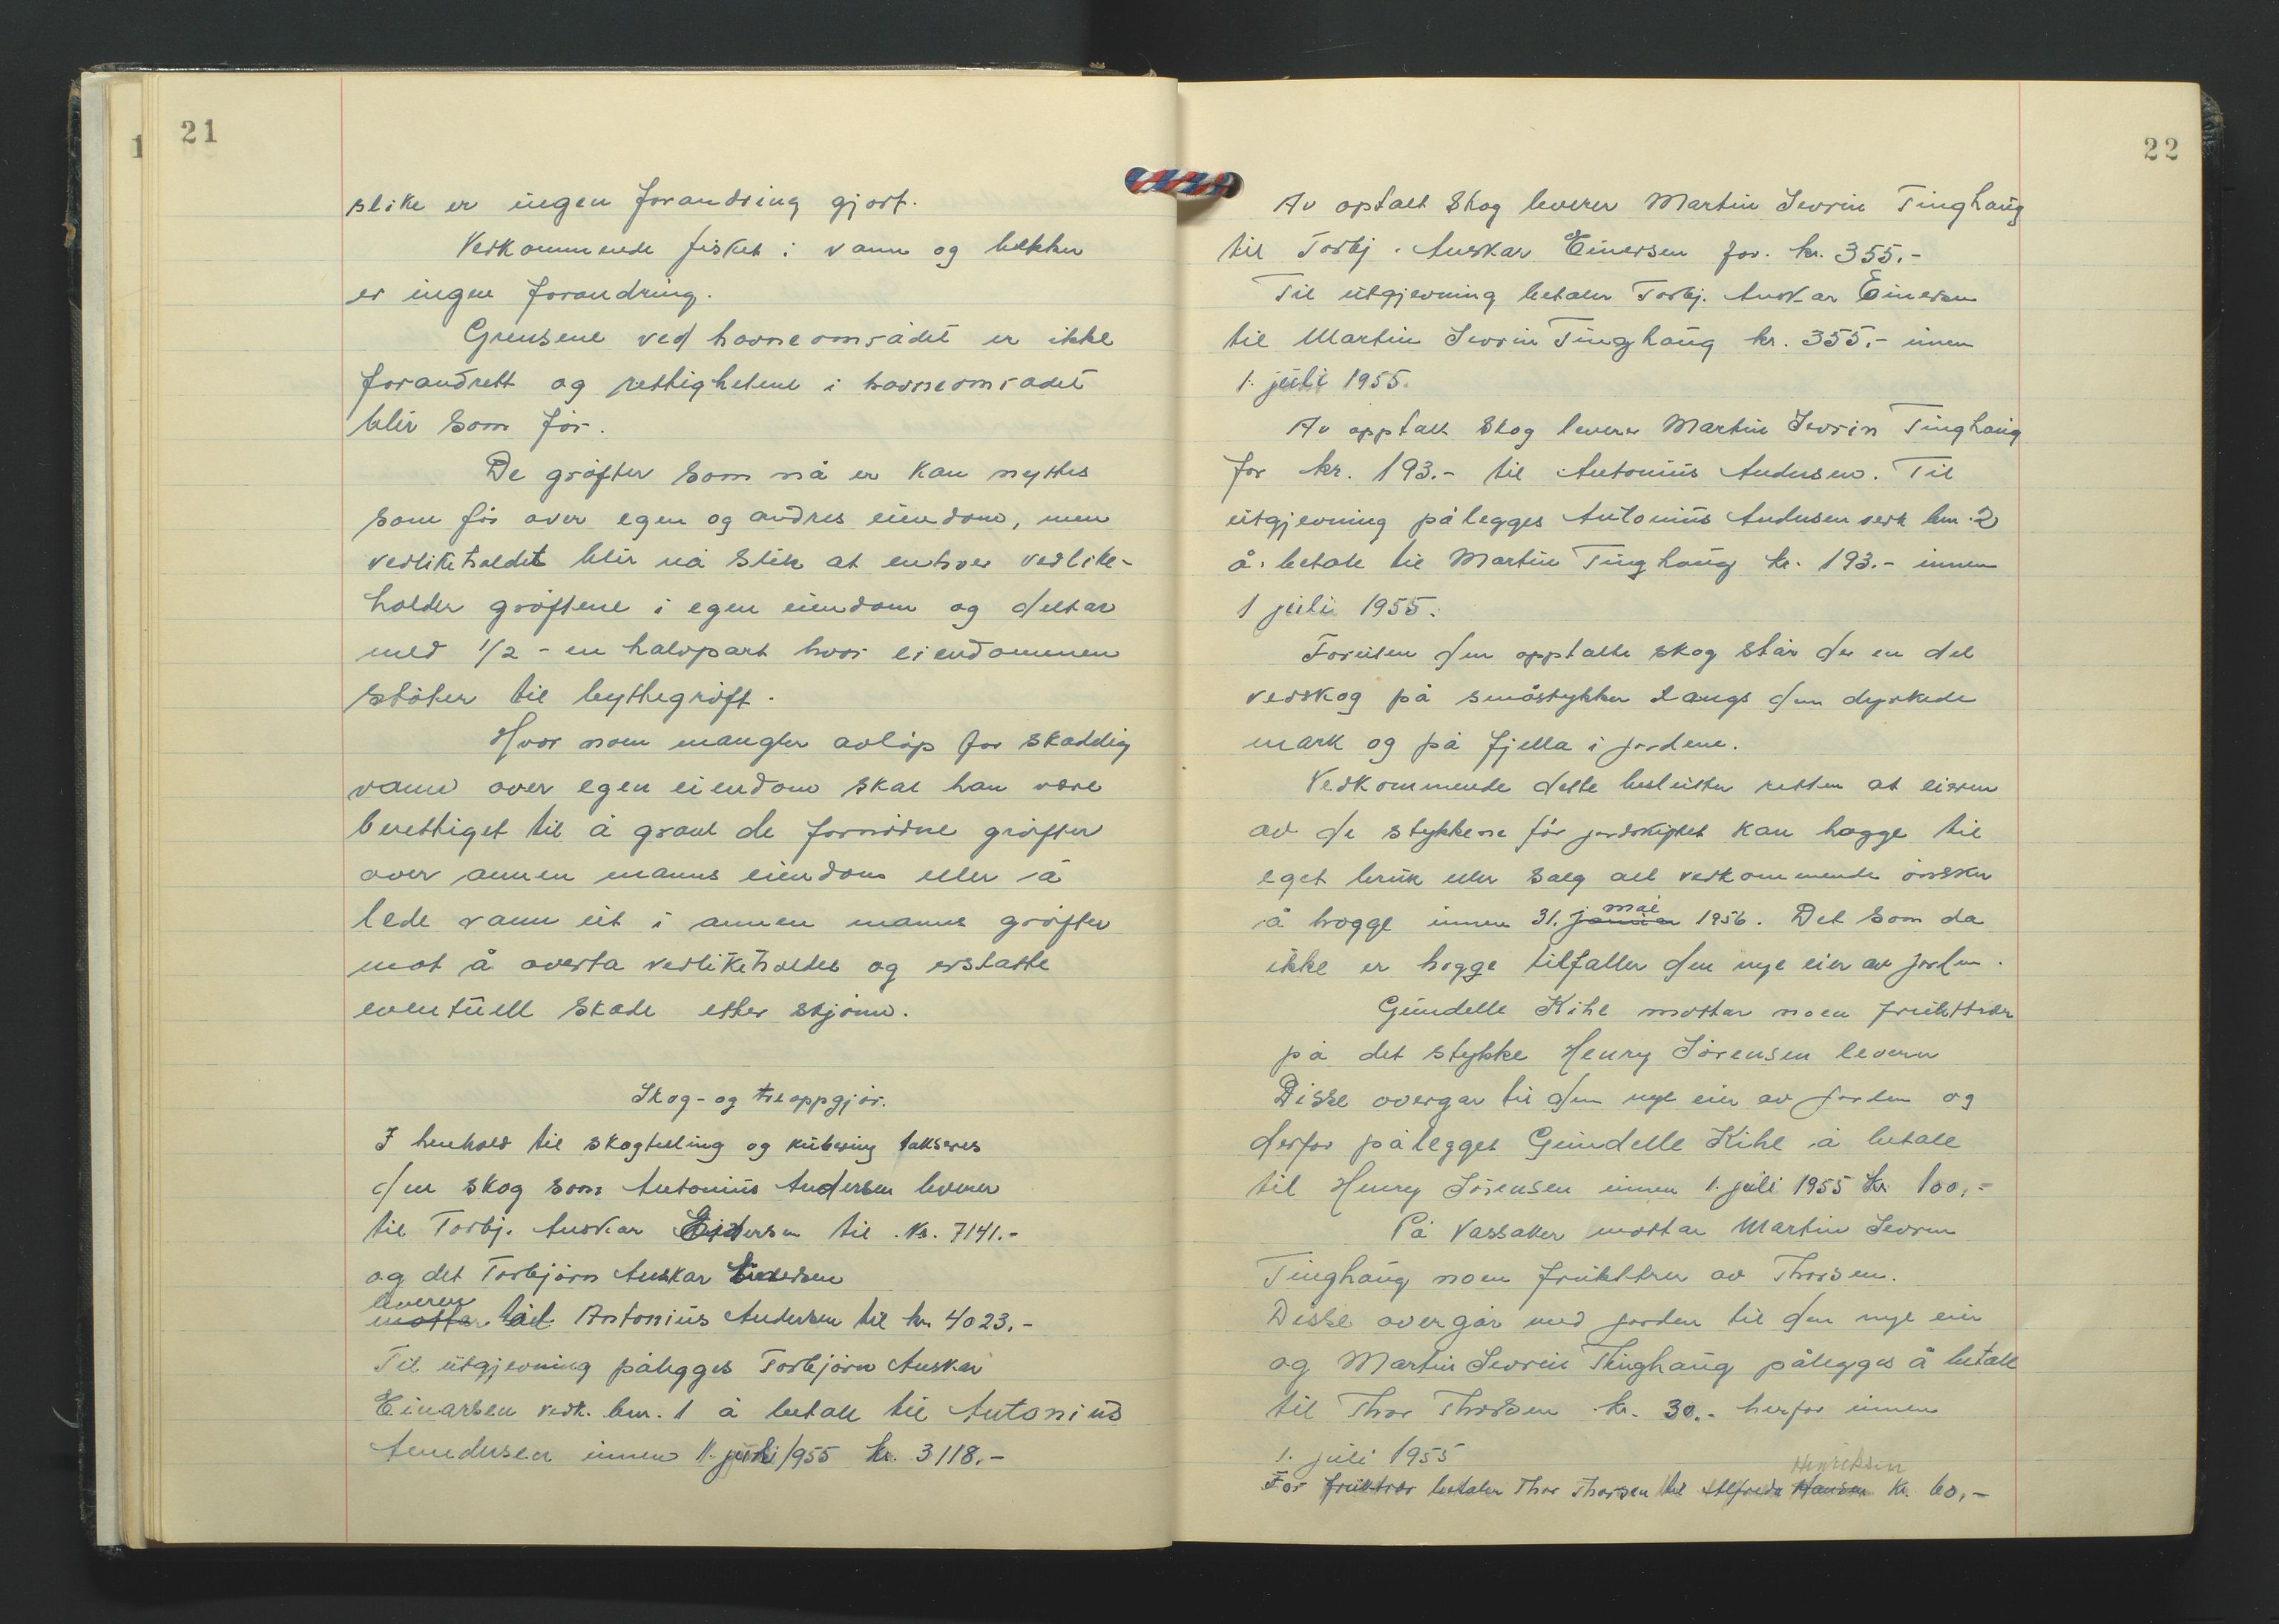 21
slike er ingen forandring gjort.
Vedkommende fisket i vann og bekker
er ingen forandring.
Grensene ved havneområdet er ikke
forandrett og rettighetene i havneområdet
blir som før.
De grøfter som nå er kan nyttes
som før over egen og andres eiendom, men
vedlikeholdet blir nå slik at enhver vedlike-
holder grøftene i egen eiendom og deltar
med 1/2 - en halvpart hvor eiendommen
støter til byttegrøft.
Hvor noen mangler avløp for skadelig
vann over egen eiendom skal han være
berettiget til å grave de fornødne grøfter
over annen manns eiendom eller å
lede vann ut i annen manns grøfter
mot å overta vedlikeholdet og erstatte
eventuell skade etter skjønn.
Skog- og treoppgjør.
I henhold til skogteling og kubering takseres
den skog som Antonius Andersen leverer
til Torbj. Anskar Einersen til kr. 7141.-
og det Torbjørn Anskar Einersen
leverer
mottar til Antonius Andersen til kr 4023.-
Til utgjevning pålegges Torbjørn Anskar
Einarsen vedk. bnr. 1 å betale til Antonius
Anndersen innen 1. juli 1955 kr. 3118.-
22
Av optalt skog leverer Martin Sevrin Tinghaug
til Torbj. Anskar Einersen for kr. 355.-
Til utgjevning betaler Torbj. Anskar Einersen
til Martin Sevrin Tinghaug kr. 355.- innen
1. juli 1955.
Av opptalt skog leverer Martin Sevrin Tinghaug
for kr. 193.- til Antonius Andersen. Til
utgjevning pålegges Antonius Andersen vedk bnr. 2
å betale til Martin Tinghaug kr. 193.- innen
1 juli 1955.
Foruten den opptalte skog står der en del
vedskog på småstykker langs den dyrkede
mark og på fjella i jordene.
Vedkommende dette beslutter retten at eieren
av de stykkene før jordskiftet kan hogge til
eget bruk eller salg alt vedkommende ønsker
mai
å hogge innen 31. januar 1956. Det som da
ikke er hogge tilfaller den nye eier av jorden.
Gundelle Kihl mottar noen frukttrær
på det stykke Henry Sørensen leverer
Disse overgar til den nye eier av jorden og
derfor pålegges Gundelle Kihl å betale
til Henry Sørensen innen 1. juli 1955 kr 100,-
På Vassaker mottar Martin Sevrin
Tinghaug noen frukttrer av Thorsen.
Disse overgår med jorden til den nye eier
og Martin Sevrin Tinghaug pålegges å betale
til Thor Thorsen kr. 30.- herfor innen
1. juli 1955
Henriksen
For frukttrær betaler Thor Thorsen til Alfreda Hansen kr. 60,-